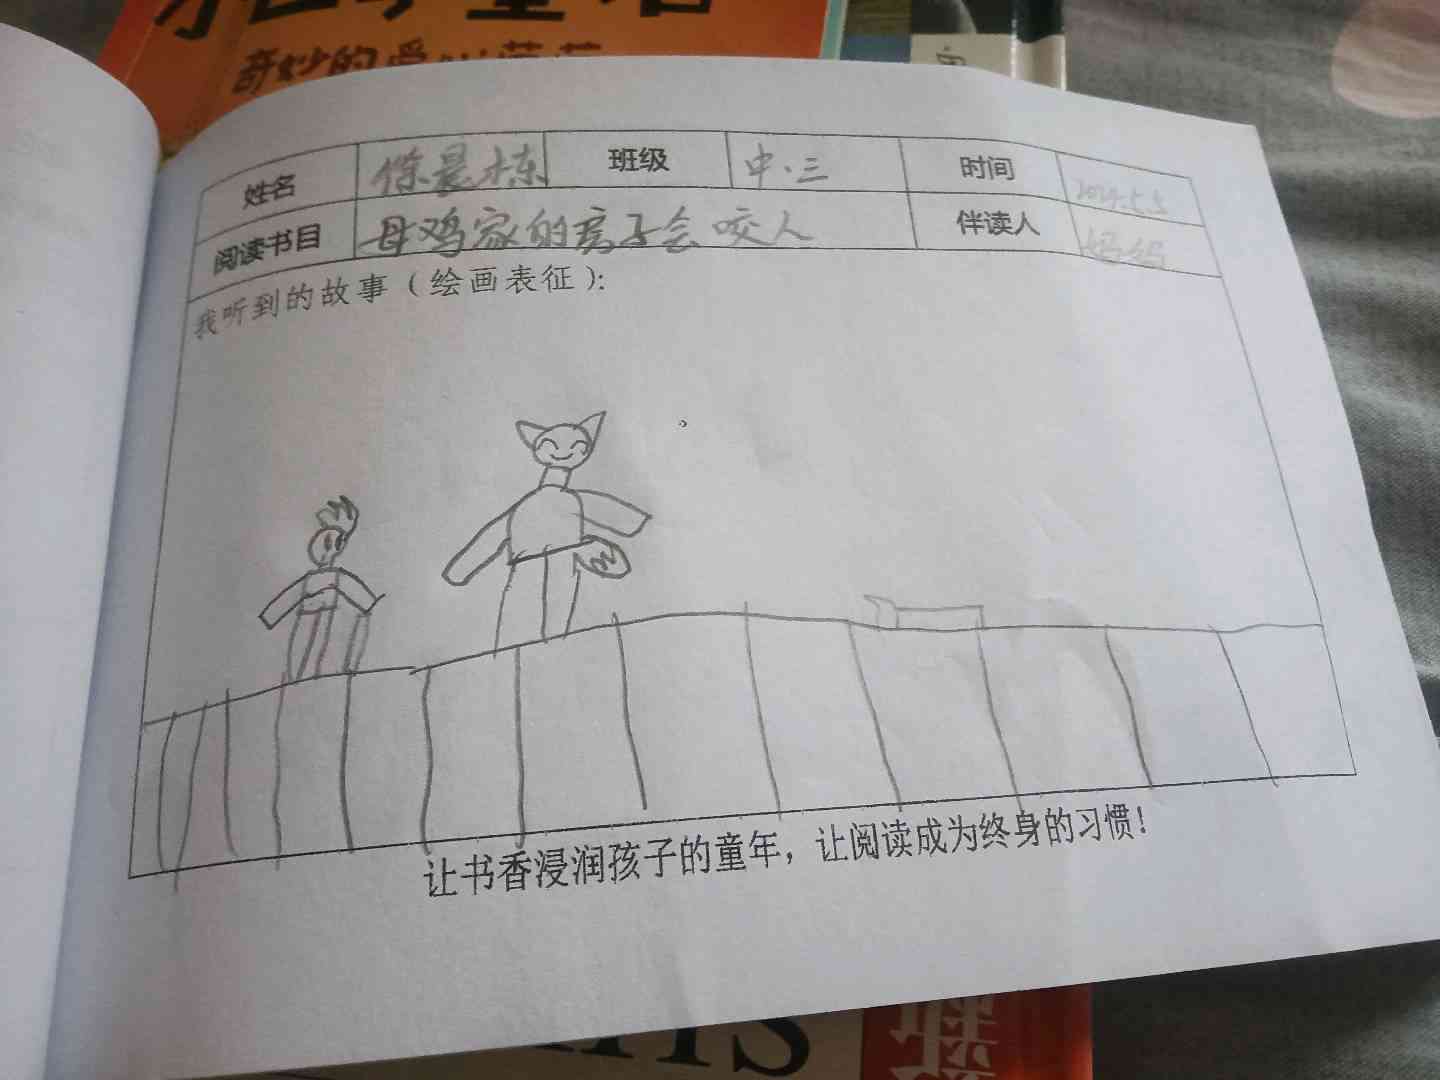 奇妙的
姓名 徐晨栋 班级 中·三 时间 2024.5.5
阅读书目 母鸡家的房子会咬人 伴读人 妈妈
我听到的故事（绘画表征）：
让书香浸润孩子的童年，让阅读成为终身的习惯！